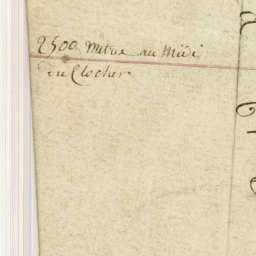 2500 metre au Midi
du Clocher